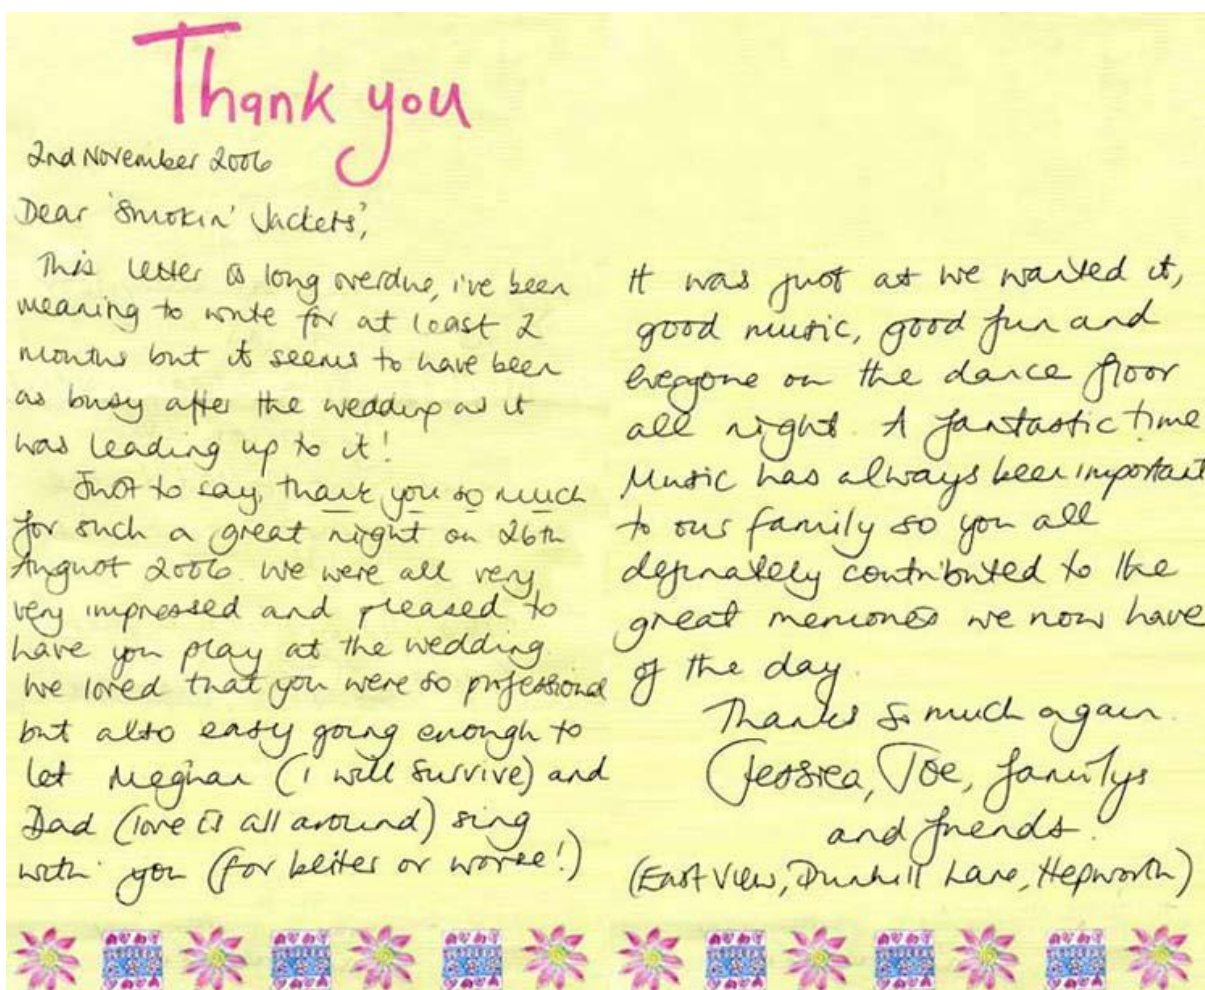 Thank you
2nd November 2006
Dear 'Smokin' Jackets',
This letter is long overdue, i've been
meaning to write for at least 2
months but it seems to have been
as busy after the wedding as it
was leading up to it!
Just to say, thank you so much
for such a great night on 26th
August 2006. We were all very
very impressed and pleased to
have you play at the wedding.
We loved that you were so professional
but also easy going enough to
let Meghan (I will survive) and
Dad (love is all around) sing
with you (for better or worse!)
It was just as we wanted it,
good music, good fun and
everyone on the dance floor
all night. A fantastic time
Music has always been important
to our family so you all
definately contributed to the
great memories we now have
of the day.
Thanks so much again.
Jessica, Joe, familys
and friends.
(East View, Dunhill Lane, Hepworth)